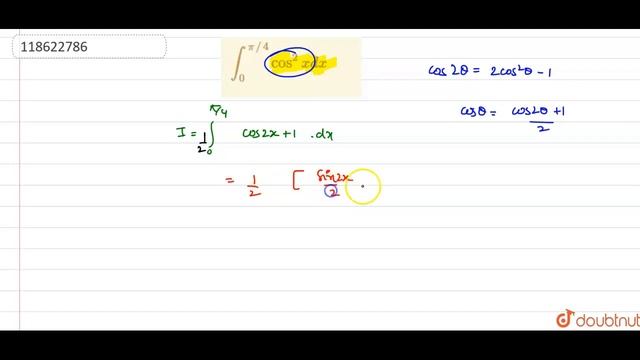 118622786
∫₀^{π/4} cos² xdx
cos 2θ = 2cos²θ - 1
cosθ = cos2θ + 1 / 2
I = 1/2 ∫₀^{π/4} cos2x + 1 . dx
= 1/2 [ sin2x / 2
doubtnut